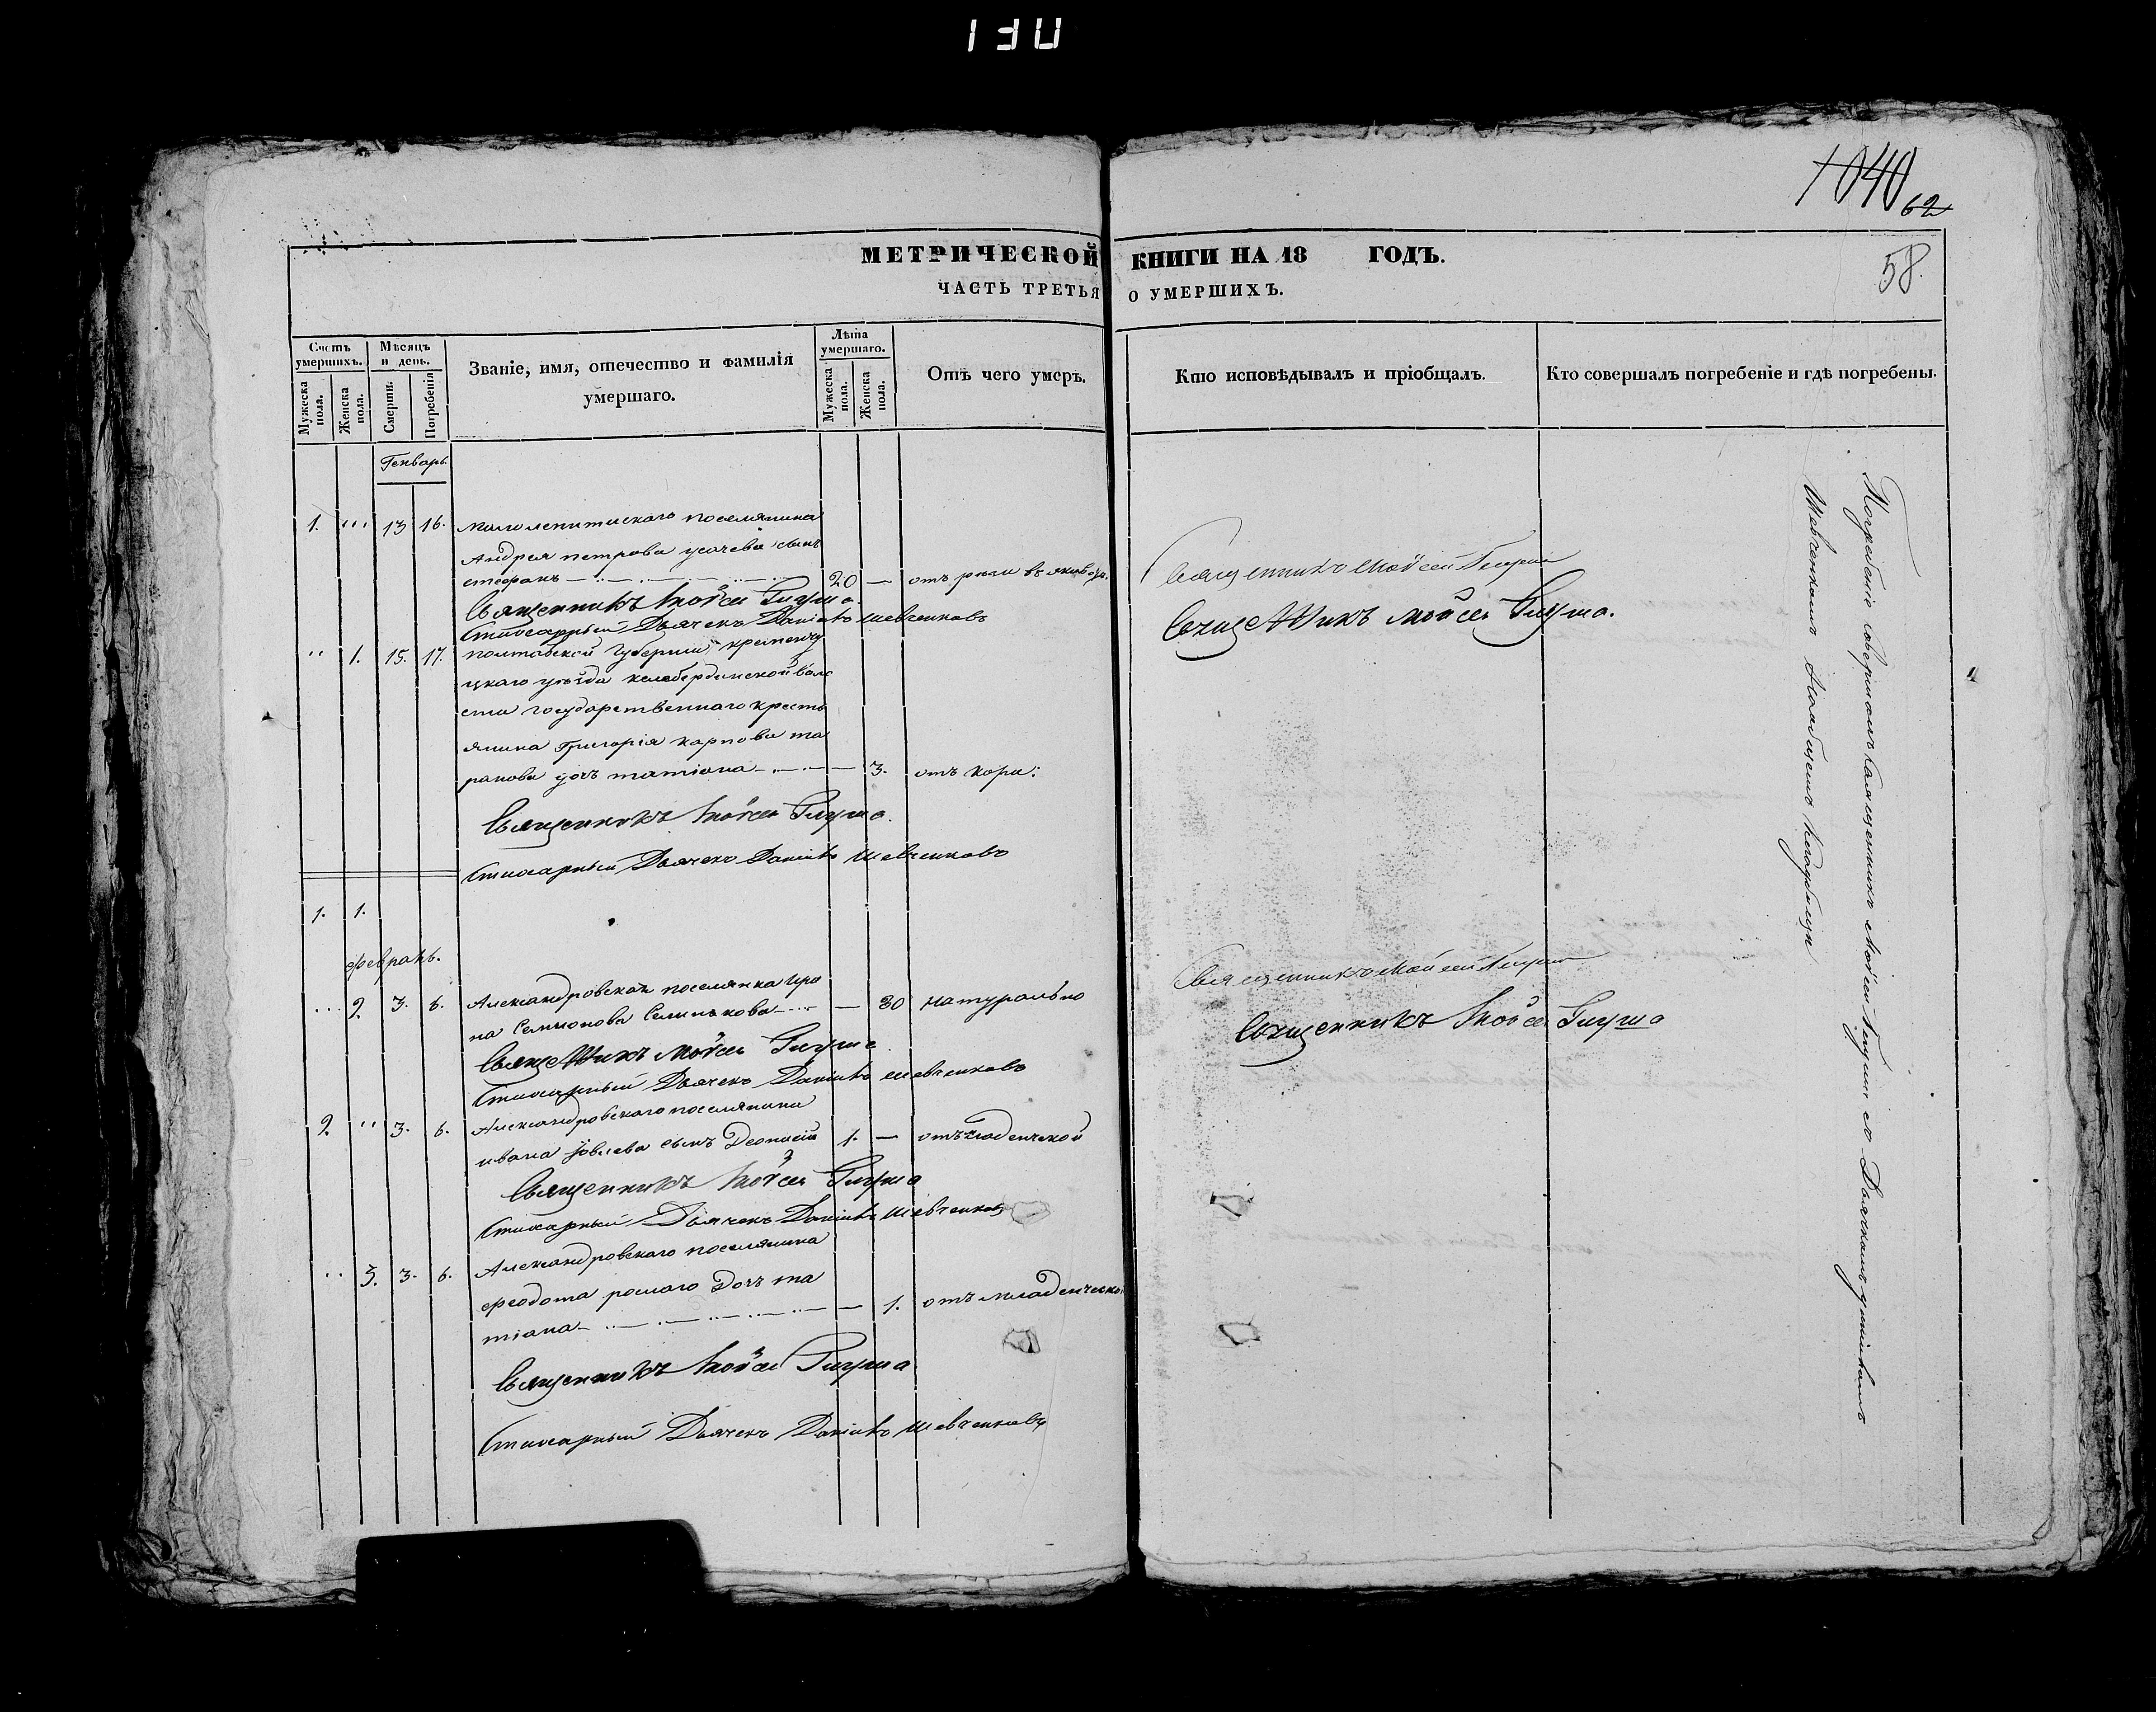 130
1040
62
58.
МЕТРИЧЕСКОЙ КНИГИ НА 18 ГОДЪ.
ЧАСТЬ ТРЕТЬЯ О УМЕРШИХЪ.
Счетъ умершихъ.
Мужеска пола.
Женска пола.
Мѣсяцъ и день.
Смерти.
Погребенія
Званіе, имя, отечество и фамилія
умершаго.
Лѣта умершаго.
Мужеска пола.
Женска пола.
Отъ чего умеръ.
Кто исповѣдывалъ и пріобщалъ.
Кто совершалъ погребеніе и гдѣ погребены.
Генварь
1. " 13 16. поселянина
Андрея петрова сынъ
стефанъ 20 — отъ
Священникъ Мойсей Глуша.
Стихарный Дьячекъ Даніилъ Шевченковъ
" 1. 15. 17. полтавской губерніи кременчу
цкаго уѣзда келебердинской воло
сти государственнаго кресть
янина Григорія карпова та
ранова дочь татіана — 3. отъ кори:
Священникъ Мойсей Глуша.
Стихарный Дьячекъ Даніилъ Шевченковъ
1. 1.
февраль.
" 2. 3. 6. Александровская поселянка Ири
на Семионова — 80 натурально
Священникъ Мойсей Глуша
Стихарный Дьячекъ Даніилъ Шевченковъ
2. " 3. 6. Александровскаго поселянина
ивана сынъ Деонисій 1. —
Священникъ Мойсей Глуша
Стихарный Дьячекъ Даніилъ Шевченковъ
" 3. 3. 6. Александровскаго поселянина
феодота дочь та
тіана — 1. отъ младенческой
Священникъ Мойсей Глуша
Стихарный Дьячекъ Даніилъ Шевченковъ
Священникъ Мойсей Глуша
Священникъ Мойсей Глуша.
Священникъ Мойсей Глуша
Священникъ Мойсей Глуша
Погребеніе совершалъ Священникъ Мойсей Глуша съ Дьячкомъ Даніиломъ
Шевченкомъ кладбищѣ